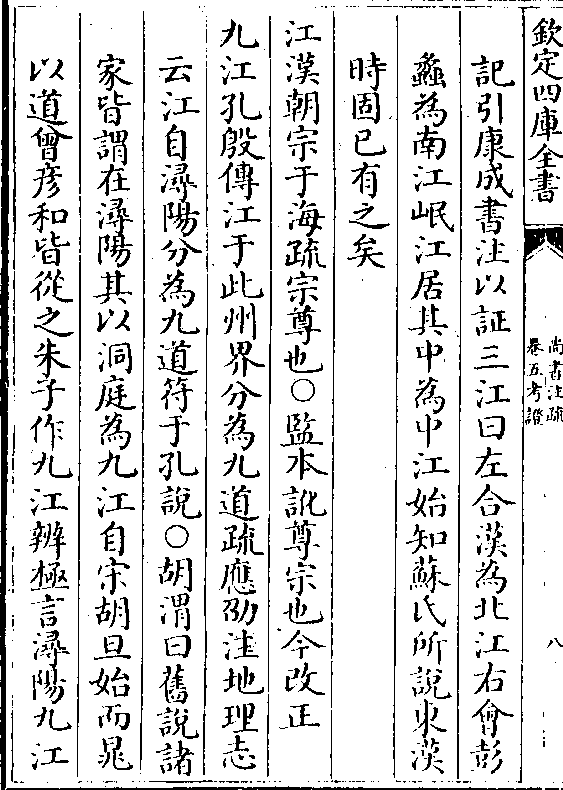 欽定四庫全書
尚書注疏
卷五考證
八
記引康成書注以証三江曰左合漢為北江右會彭
蠡為南江岷江居其中為中江始知蘇氏所說東漢
時固已有之矣
江漢朝宗于海疏宗尊也○監本訛尊宗也今改正
九江孔殷傳江于此州界分為九道疏應劭注地理志
云江自潯陽分為九道符于孔說○胡渭曰舊說諸
家皆謂在潯陽其以洞庭為九江自宋胡旦始而晁
以道曾彦和皆從之朱子作九江辨極言潯陽九江